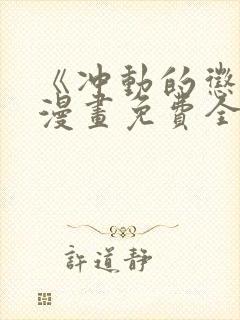 《冲動的懲
漫畫免費全
許道靜